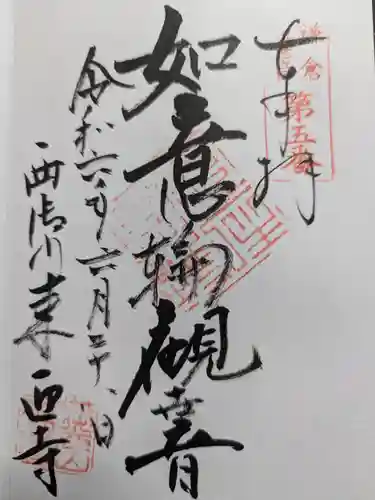 奉拝
鎌倉
第五番
如意輪観音
令和六年六月三十日
西御門 来迎寺